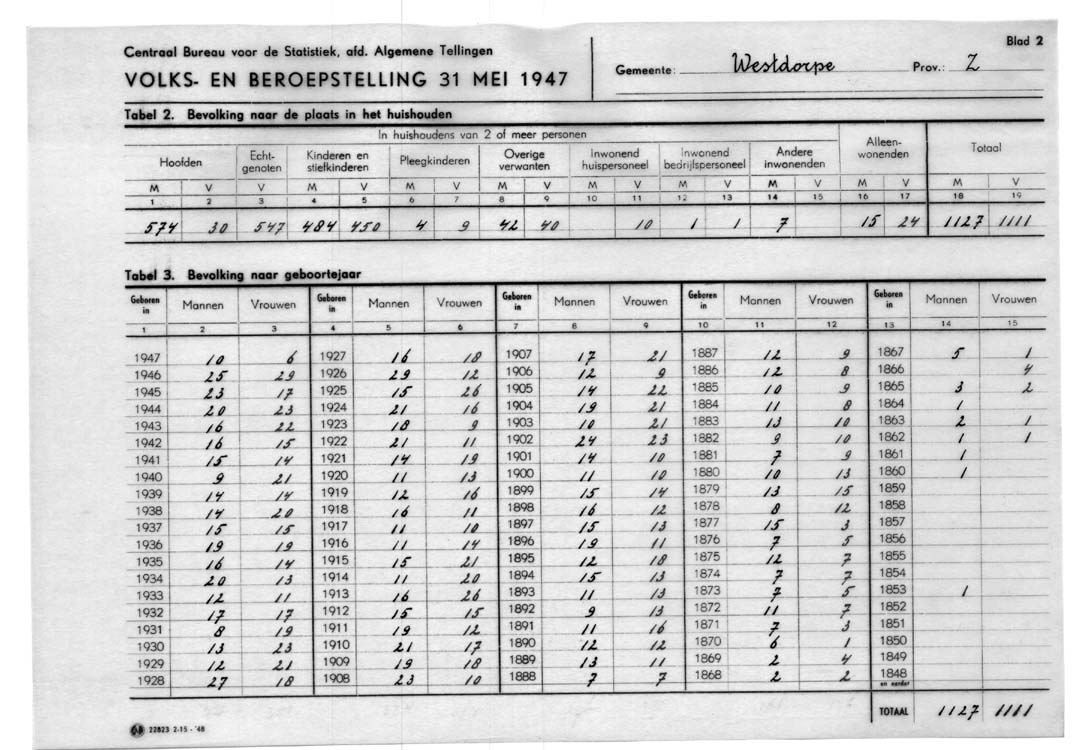 Centraal Bureau voor de Statistiek, afd. Algemene Tellingen
VOLKS- EN BEROEPSTELLING 31 MEI 1947
Gemeente: Westdorpe Prov.: Z
Blad 2
Tabel 2. Bevolking naar de plaats in het huishouden
In huishoudens van 2 of meer personen
Hoofden Echt-genoten Kinderen en stiefkinderen Pleegkinderen Overige verwanten Inwonend huispersoneel Inwonend bedrijfspersoneel Andere inwonenden Alleen-wonenden Totaal
M V V M V M V M V M V M V M V M V M V
1 2 3 4 5 6 7 8 9 10 11 12 13 14 15 16 17 18 19
574 30 547 484 450 4 9 42 40 10 1 1 7 15 24 1127 1111
Tabel 3. Bevolking naar geboortejaar
Geboren in Mannen Vrouwen Geboren in Mannen Vrouwen Geboren in Mannen Vrouwen Geboren in Mannen Vrouwen Geboren in Mannen Vrouwen
1 2 3 4 5 6 7 8 9 10 11 12 13 14 15
1947 10 6 1927 16 18 1907 17 21 1887 12 9 1867 5 1
1946 25 29 1926 29 12 1906 12 9 1886 12 8 1866 4
1945 23 17 1925 15 26 1905 14 22 1885 10 9 1865 3 2
1944 20 23 1924 21 16 1904 19 21 1884 11 8 1864 1
1943 16 22 1923 18 9 1903 10 21 1883 13 10 1863 2 1
1942 16 15 1922 21 11 1902 24 23 1882 9 10 1862 1 1
1941 15 14 1921 14 19 1901 14 10 1881 7 9 1861 1
1940 9 21 1920 11 13 1900 11 10 1880 10 13 1860 1
1939 14 14 1919 12 16 1899 15 14 1879 13 15 1859
1938 14 20 1918 16 11 1898 16 12 1878 8 12 1858
1937 15 15 1917 11 10 1897 15 13 1877 15 3 1857
1936 19 19 1916 11 14 1896 19 11 1876 7 5 1856
1935 16 14 1915 15 21 1895 12 18 1875 12 7 1855
1934 20 13 1914 11 20 1894 15 13 1874 7 7 1854
1933 12 11 1913 16 26 1893 11 13 1873 7 5 1853 1
1932 17 17 1912 15 15 1892 9 13 1872 11 7 1852
1931 8 19 1911 19 12 1891 11 16 1871 7 3 1851
1930 13 23 1910 21 17 1890 12 12 1870 6 1 1850
1929 12 21 1909 19 18 1889 13 11 1869 2 4 1849
1928 27 18 1908 23 10 1888 7 7 1868 2 2 1848 en eerder
TOTAAL 1127 1111
22823 2-15 - '48